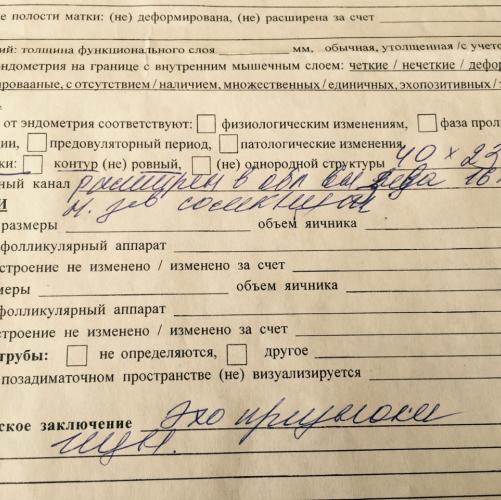 е полости матки: (не) деформирована, (не) расширена за счет
ий: толщина функционального слоя мм, обычная, утолщенная /с учето
ндометрия на границе с внутренним мышечным слоем: четкие / нечеткие / дефор
ированые, с отсутствием / наличием, множественных / единичных, эхопозитивных /
от эндометрия соответствуют: физиологическим изменениям, фаза прол
ции, предовуляторный период, патологические изменения,
ки: контур (не) ровный, (не) однородной структуры 40 × 23
ный канал расширен в обл
И
размеры объем яичника
фолликулярный аппарат
строение не изменено / изменено за счет
меры объем яичника
фолликулярный аппарат
строение не изменено / изменено за счет
трубы: не определяются, другое
позадиматочном пространстве (не) визуализируется
ское заключение Эхо признаки